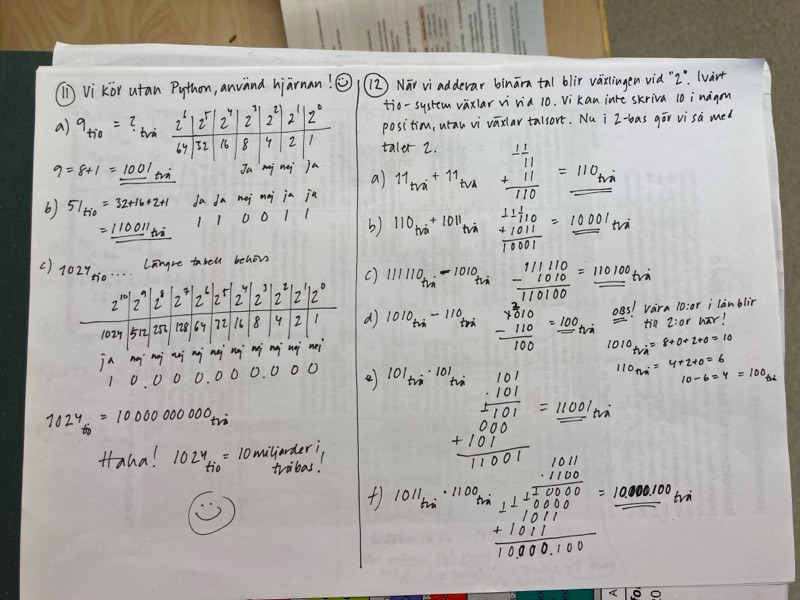 11 Vi kör utan Python, använd hjärnan! ☺
a) 9tio = ?två
2^6 | 2^5 | 2^4 | 2^3 | 2^2 | 2^1 | 2^0
64 | 32 | 16 | 8 | 4 | 2 | 1
9 = 8+1 = 1001två
Ja nej nej ja
b) 51tio = 32+16+2+1
Ja Ja nej nej ja ja
= 110011två
1 1 0 0 1 1
c) 1024tio .... Längre tabell behövs
2^10 | 2^9 | 2^8 | 2^7 | 2^6 | 2^5 | 2^4 | 2^3 | 2^2 | 2^1 | 2^0
1024 | 512 | 256 | 128 | 64 | 32 | 16 | 8 | 4 | 2 | 1
ja nej nej nej nej nej nej nej nej nej nej
1 0.0 0 0.0 0 0.0 0 0
1024tio = 10 000 000 000två
Haha! 1024tio = 10 miljarder i
tvåbas!
12 När vi adderar binära tal blir växlingen vid "2". I vårt
tio-system växlar vi vid 10. Vi kan inte skriva 10 i någon
position, utan vi växlar talsort. Nu i 2-bas gör vi så med
talet 2.
a) 11två + 11två
11
11
+ 11
110
= 110två
b) 110två + 1011två
111
110
+ 1011
10001
= 10001två
c) 111110två - 1010två
111110
- 1010
110100
= 110100två
d) 1010två - 110två
2
1010
- 110
100
= 100två
OBS! Våra 10:or i lån blir
till 2:or här!
1010två = 8+0+2+0 = 10
110två = 4+2+0 = 6
10-6 = 4 = 100två
e) 101två · 101två
101
· 101
1101
000
+ 101
11001
= 11001två
f) 1011två · 1100två
1011
· 1100
1 0000
1 1 0000
1011
+ 1011
10.000.100
= 10.000.100två